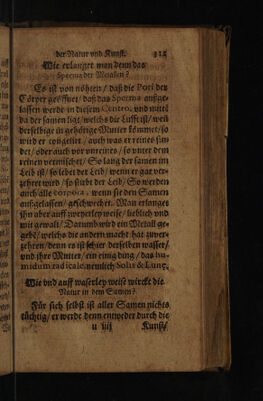 der Natur und Kunst. 311
Wie erlanget man denn das
Sperma der Metallen?
Es ist von nöhten / daß die Pori des
Cörper geöffnet / daß das Sperma außge-
lassen werde in diesem Centro, und mittel
da der samen ligt / welchs die Lufft ist / weil
derselbige in gehörige Mutter kömmet / so
wird er congelirt / auch was er reines fin-
det / oder auch vor unreines / so unter dem
reinen vermischet / So lang der samen im
Leib ist / so lebet der Leib / wenn er gar ver-
zehret wird / so stirbt der Leib / So werden
auch alle corpora, wenn sie den Samen
außgelassen / geschwechet. Man erlanget
ihn aber auff zweyerley weise / lieblich und
mit gewalt / Darumb wird ein Metall ge-
gebē / welchs die andern macht hat zuver-
zehren / denn es ist schier derselben wasser /
und ihre Mutter / ein einig ding / das hu-
midum radicale, nemlich Solis & Lunę.
Wie und auff waserley weise wircke die
Natur in dem Samen?
Für sich selbst ist aller Samen nichts
tüchtig / er werde denn entweder durch die
u iiij Kunst /